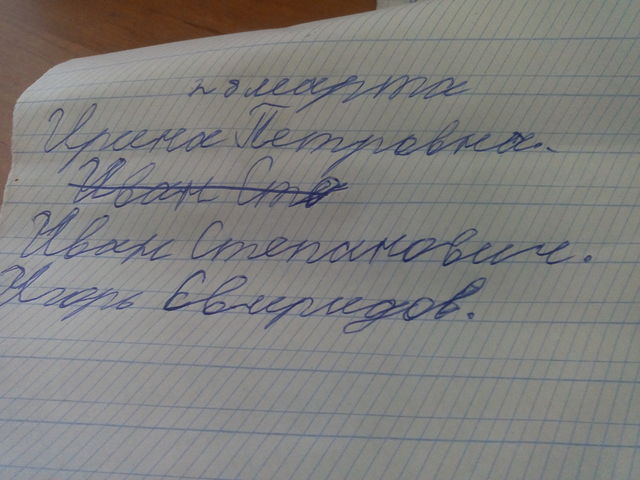 28 марта
Ирина Петровна.
Иван Сте
Иван Степанович.
Игорь Свиридов.